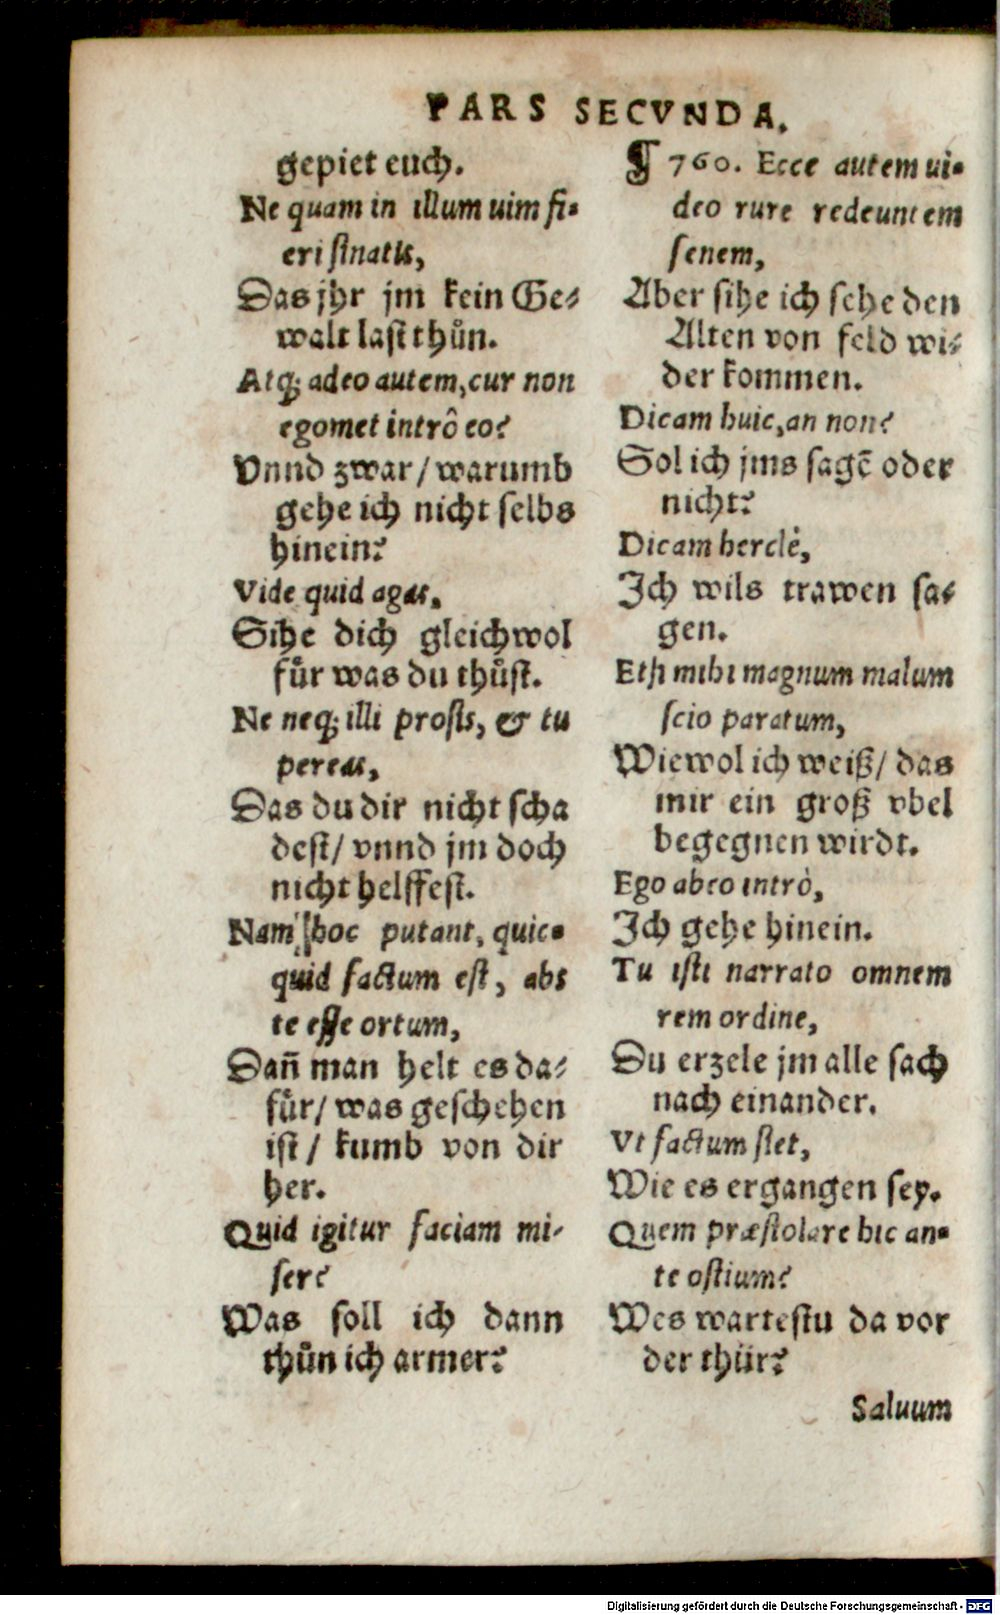 PARS SECVNDA.
gepiet euch.
Ne quam in illum uim fi-
eri ſinatis,
Das jhr jm kein Ge-
walt laſt thuͦn.
Atq; adeo autem, cur non
egomet intrô eo?
Vnnd zwar / warumb
gehe ich nicht ſelbs
hinein?
Vide quid agas.
Sihe dich gleichwol
fuͤr was du thuͦſt.
Ne neq; illi proſis, & tu
pereas,
Das du dir nicht ſcha
deſt / vnnd jm doch
nicht helffeſt.
Nam hoc putant, quic-
quid factum eſt, abs
te eſſe ortum,
Dañ man helt es da-
fuͤr / was geſchehen
iſt / kumb von dir
her.
Quid igitur faciam mi-
ſer?
Was ſoll ich dann
thuͦn ich armer?
¶ 760. Ecce autem ui-
deo rure redeuntem
ſenem,
Aber ſihe ich ſehe den
Alten von feld wi-
der kommen.
Dicam huic, an non?
Sol ich jms ſagẽ oder
nicht?
Dicam herclè,
Ich wils trawen ſa-
gen.
Etſi mihi magnum malum
ſcio paratum,
Wiewol ich weiß / das
mir ein groß vbel
begegnen wirdt.
Ego abeo intrò,
Ich gehe hinein.
Tu iſti narrato omnem
rem ordine,
Du erzele jm alle ſach
nach einander.
Vt factum ſiet,
Wie es ergangen ſey.
Quem præſtolare hic an-
te oſtium?
Wes warteſtu da vor
der thür?
Saluum
Digitalisierung gefördert durch die Deutsche Forschungsgemeinschaft - DFG